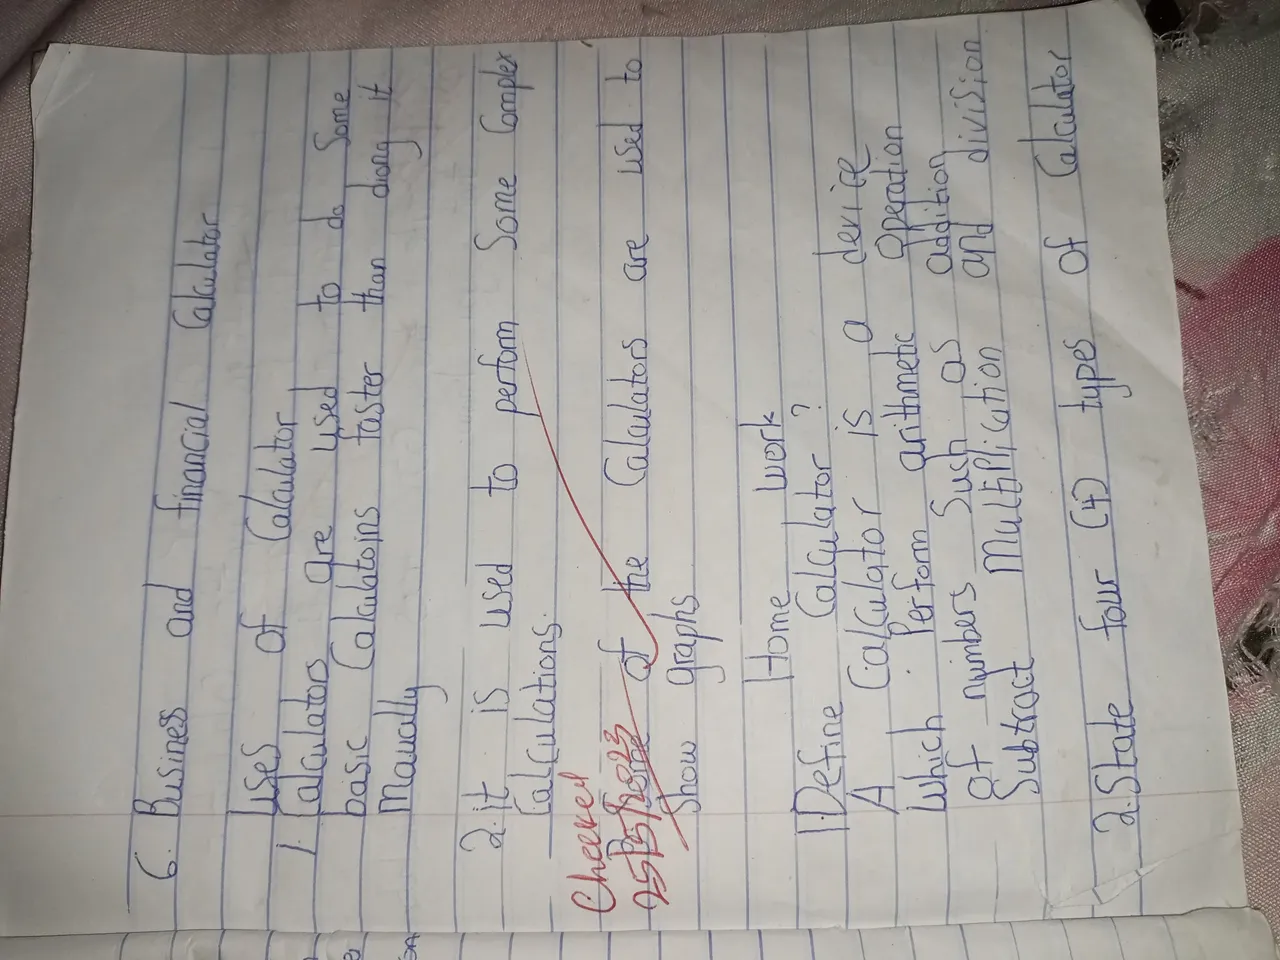 6. Business and financial Calculator
Uses of Calculator
1. Calculators are used to do Some
basic Calculatoins faster than diong it
Manually
2. it is used to perform Some Complex
Calculations.
Cheeked
25/5/2023 of the Calculators are used to
Show graphs
Home work
1 Define Calculator ?
A Calculator is a device
Which Perform arithmetic operation
of numbers Such as addition
Subtract Multiplication and division
2. State four (4) types of Calculator